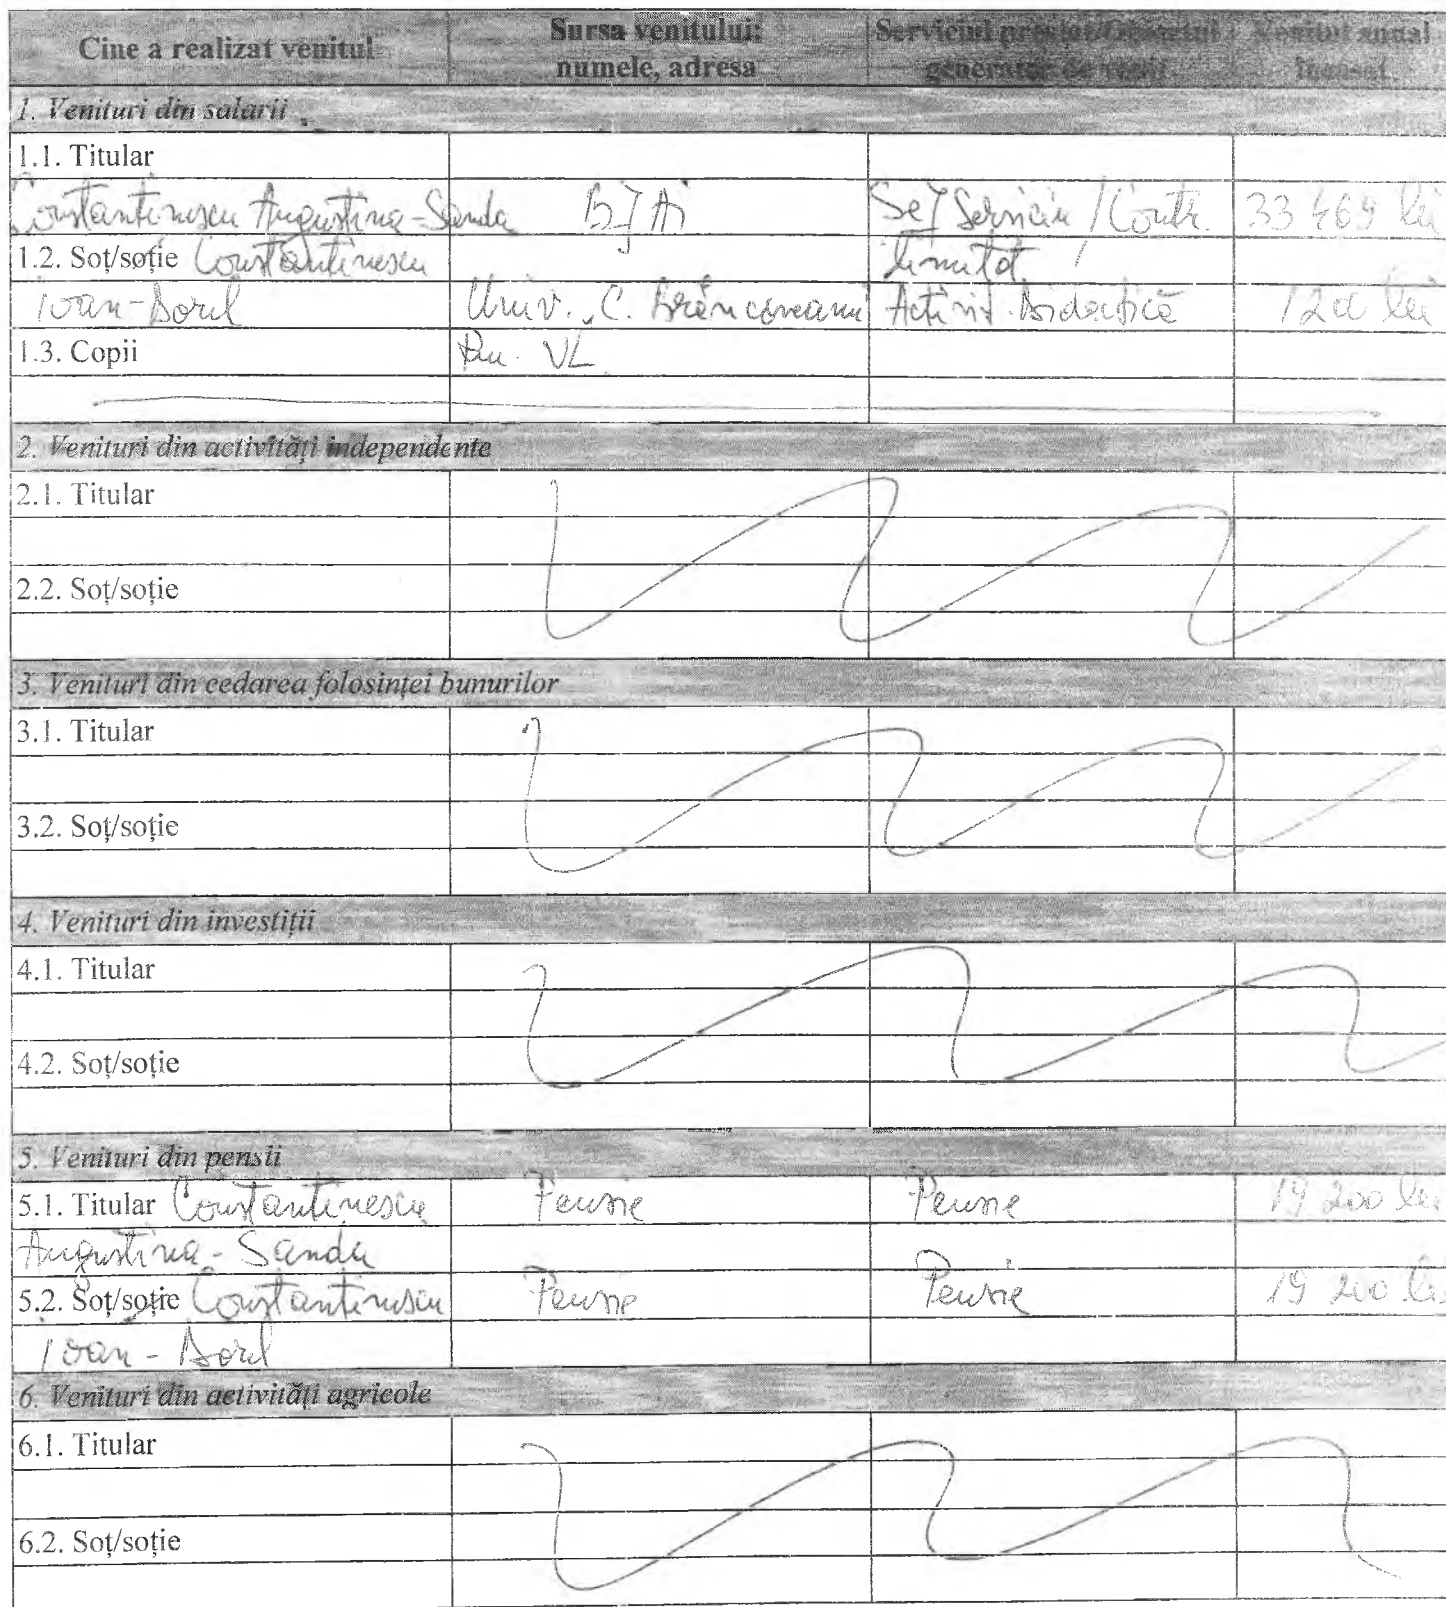 Cine a realizat venitul
Sursa venitului:
numele, adresa
Serviciul prestat/Obiectul
generator de venit
Venitul anual
încasat
1. Venituri din salarii
1.1. Titular
Constantinescu Augustina-Sanda BJAI Șef Serviciu / Contr. 33 469 lei
1.2. Soț/soție Constantinescu limitat
Ioan-Dorel Univ. C. Brâncoveanu Activit. Didactică lei
1.3. Copii Rm. VL
2. Venituri din activități independente
2.1. Titular
2.2. Soț/soție
3. Venituri din cedarea folosinței bunurilor
3.1. Titular
3.2. Soț/soție
4. Venituri din investiții
4.1. Titular
4.2. Soț/soție
5. Venituri din pensii
5.1. Titular Constantinescu Pensie Pensie 19 200 lei
Augustina-Sanda
5.2. Soț/soție Constantinescu Pensie Pensie 19 200 lei
Ioan-Dorel
6. Venituri din activități agricole
6.1. Titular
6.2. Soț/soție